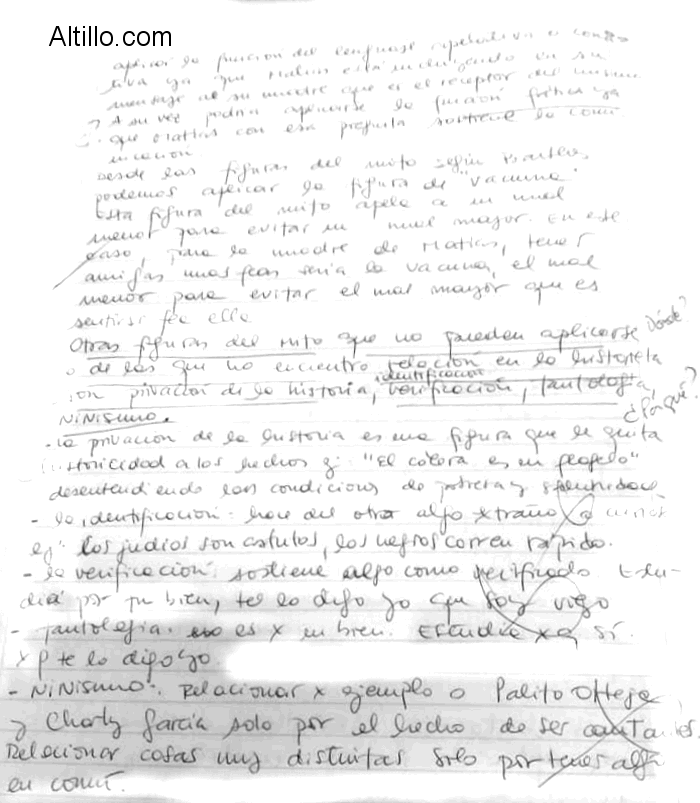 Altillo.com
aplicar la funcion del lenguaje apelativa o cona
tiva ya que Matias está en su
mensaje a su madre que es el receptor del mismo
A su vez podria aplicarse la función fática ya
que Matias con esa pregunta sostiene la comu
nicación.
Desde las figuras del mito según Barthes,
podemos aplicar la figura de "vacuna".
Esta figura del mito apela a un mal
menor para evitar un mal mayor. En este
caso, para la madre de Matias, tener
amigas unas feas seria la vacuna, el mal
menor para evitar el mal mayor que es
sentirse fea ella
Otras figuras del mito que no pueden aplicarse Dónde?
o de las que no encuentro relación en la historieta
son privación de la historia, identificación verificación, tautología,
NiNismo. ¿Por qué?
- la privación de la historia es una figura que le quita
historicidad a los hechos ej: "El cólera es un flagelo"
desentendiendo las condiciones de pobreza y
- la identificación: hace del otro algo xtraño
ej: los judios son astutos, los negros corren rapido.
- la verificación: sostiene algo como verificado Estu-
dia por tu bien, te lo digo yo que soy viejo
- Tautologia. es x tu bien. Estudia xq sí.
xq te lo digo yo.
- NiNismo: Relacionar x ejemplo a Palito Ortega
y Charly Garcia solo por el hecho de ser cantantes.
Relacionar cosas muy distintas solo por tener algo
en común.